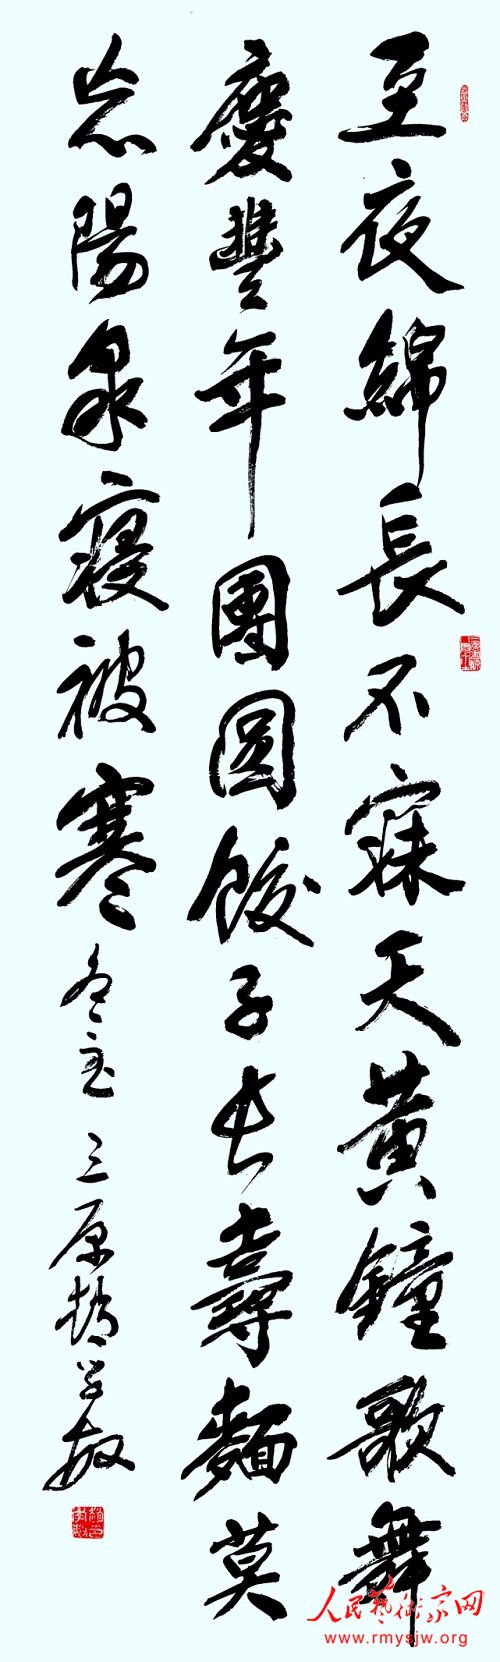 至夜綿長不寐天黃鐘歌舞
慶豐年團圓餃子長壽麵莫
忘陽泉寢被寒 冬至 三原趙学敏
人民藝術家网
www.rmysjw.org